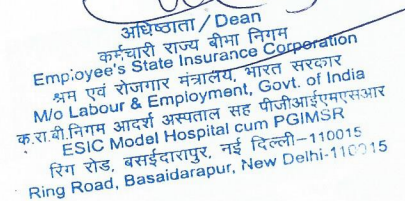 अधिष्ठाता / Dean
कर्मचारी राज्य बीमा निगम
Employee's State Insurance Corporation
श्रम एवं रोजगार मंत्रालय, भारत सरकार
M/o Labour & Employment, Govt. of India
क.रा.बी.निगम आदर्श अस्पताल सह पीजीआईएमएसआर
ESIC Model Hospital cum PGIMSR
रिंग रोड, बसईदारापुर, नई दिल्ली–110015
Ring Road, Basaidarapur, New Delhi-110015